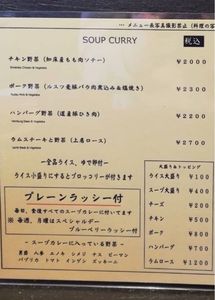 … メニュー表写真撮影禁止 (料理の写
SOUP CURRY 税込
チキン野菜 (知床産もも肉ソテー) ¥2000
ポーク野菜 (ルスツ産豚バラ肉煮込み&塩焼き) ¥2300
ハンバーグ野菜 (道産豚ひき肉) ¥2200
ラムステーキと野菜 (上肩ロース) ¥2700
ー全品ライス、ゆで卵付ー
ライス小盛りにするとブロッコリーが付きます
プレーンラッシー付
毎日、素揚すべてのスープカレーに付いてます
※ 毎週、月曜はスペシャルデー
ブルーベリーラッシー付
大盛り&トッピング
ライス大盛り ¥100
スープ大盛り ¥200
チーズ ¥200
チキン ¥500
ポーク ¥800
ハンバーグ ¥700
ラムロース ¥1200
ースープカレーに入っている野菜ー
男爵 人参 エノキ シメジ ナス ピーマン
パプリカ トマト インゲン ズッキーニ